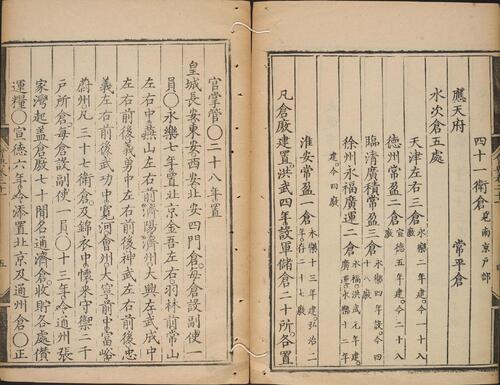 應天府
四十一衛倉見南京戶部
常平倉
水次倉五處
天津左右三倉永樂二年建今一十八
德州常盈二倉宣德五年建今二十八
臨清廣積常盈三倉永樂四年設今四十八廒
徐州永福廣運二倉永福洪武元年建廣運永樂十二年建今四廒
淮安常盈一倉永樂十三年建弘治二年建今二十七
凡倉廒建置洪武四年設軍儲倉二十所各置
官掌管〇二十八年置
皇城長安東安西安北安四門倉每倉設副使一
員〇永樂七年置北京金吾左右羽林前常山
左右中燕山左右前濟陽濟州大興左武成中
左右前後義勇中左右前後神武左右前後忠
義左右前後武功中寬河會州大寧前中富峪
蔚州凡三十七衛倉及錦衣中懷來守禦二千
戶所倉每倉設副使一員〇十三年令通州張
家灣起盖倉廒七十間名通濟倉收貯各處儹
運糧〇宣德六年令添置北京及通州倉〇正
五